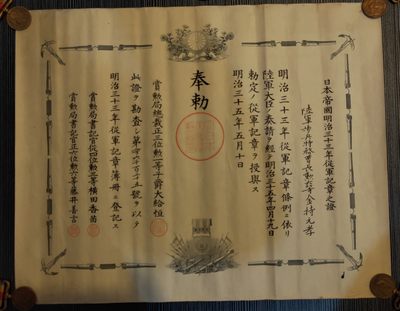 日本帝國明治三十三年從軍記章之證
陸軍歩兵特務曹長勲 等金持元孝
明治三十三年從軍記章條例ニ依リ
陸軍大臣ノ奏請ヲ經テ明治三十五年四月十九日
勅定ノ從軍記章ヲ授與ス
明治三十五年五月十日
奉勅
賞勲局總裁正三位勲一等子爵大給恒
此證ヲ勘査シ第 號ヲ以テ
明治三十三年從軍記章簿冊ニ登記ス
賞勲局書記官從四位勲三等横田香苗
賞勲局書記官正六位勲六等藤井善言